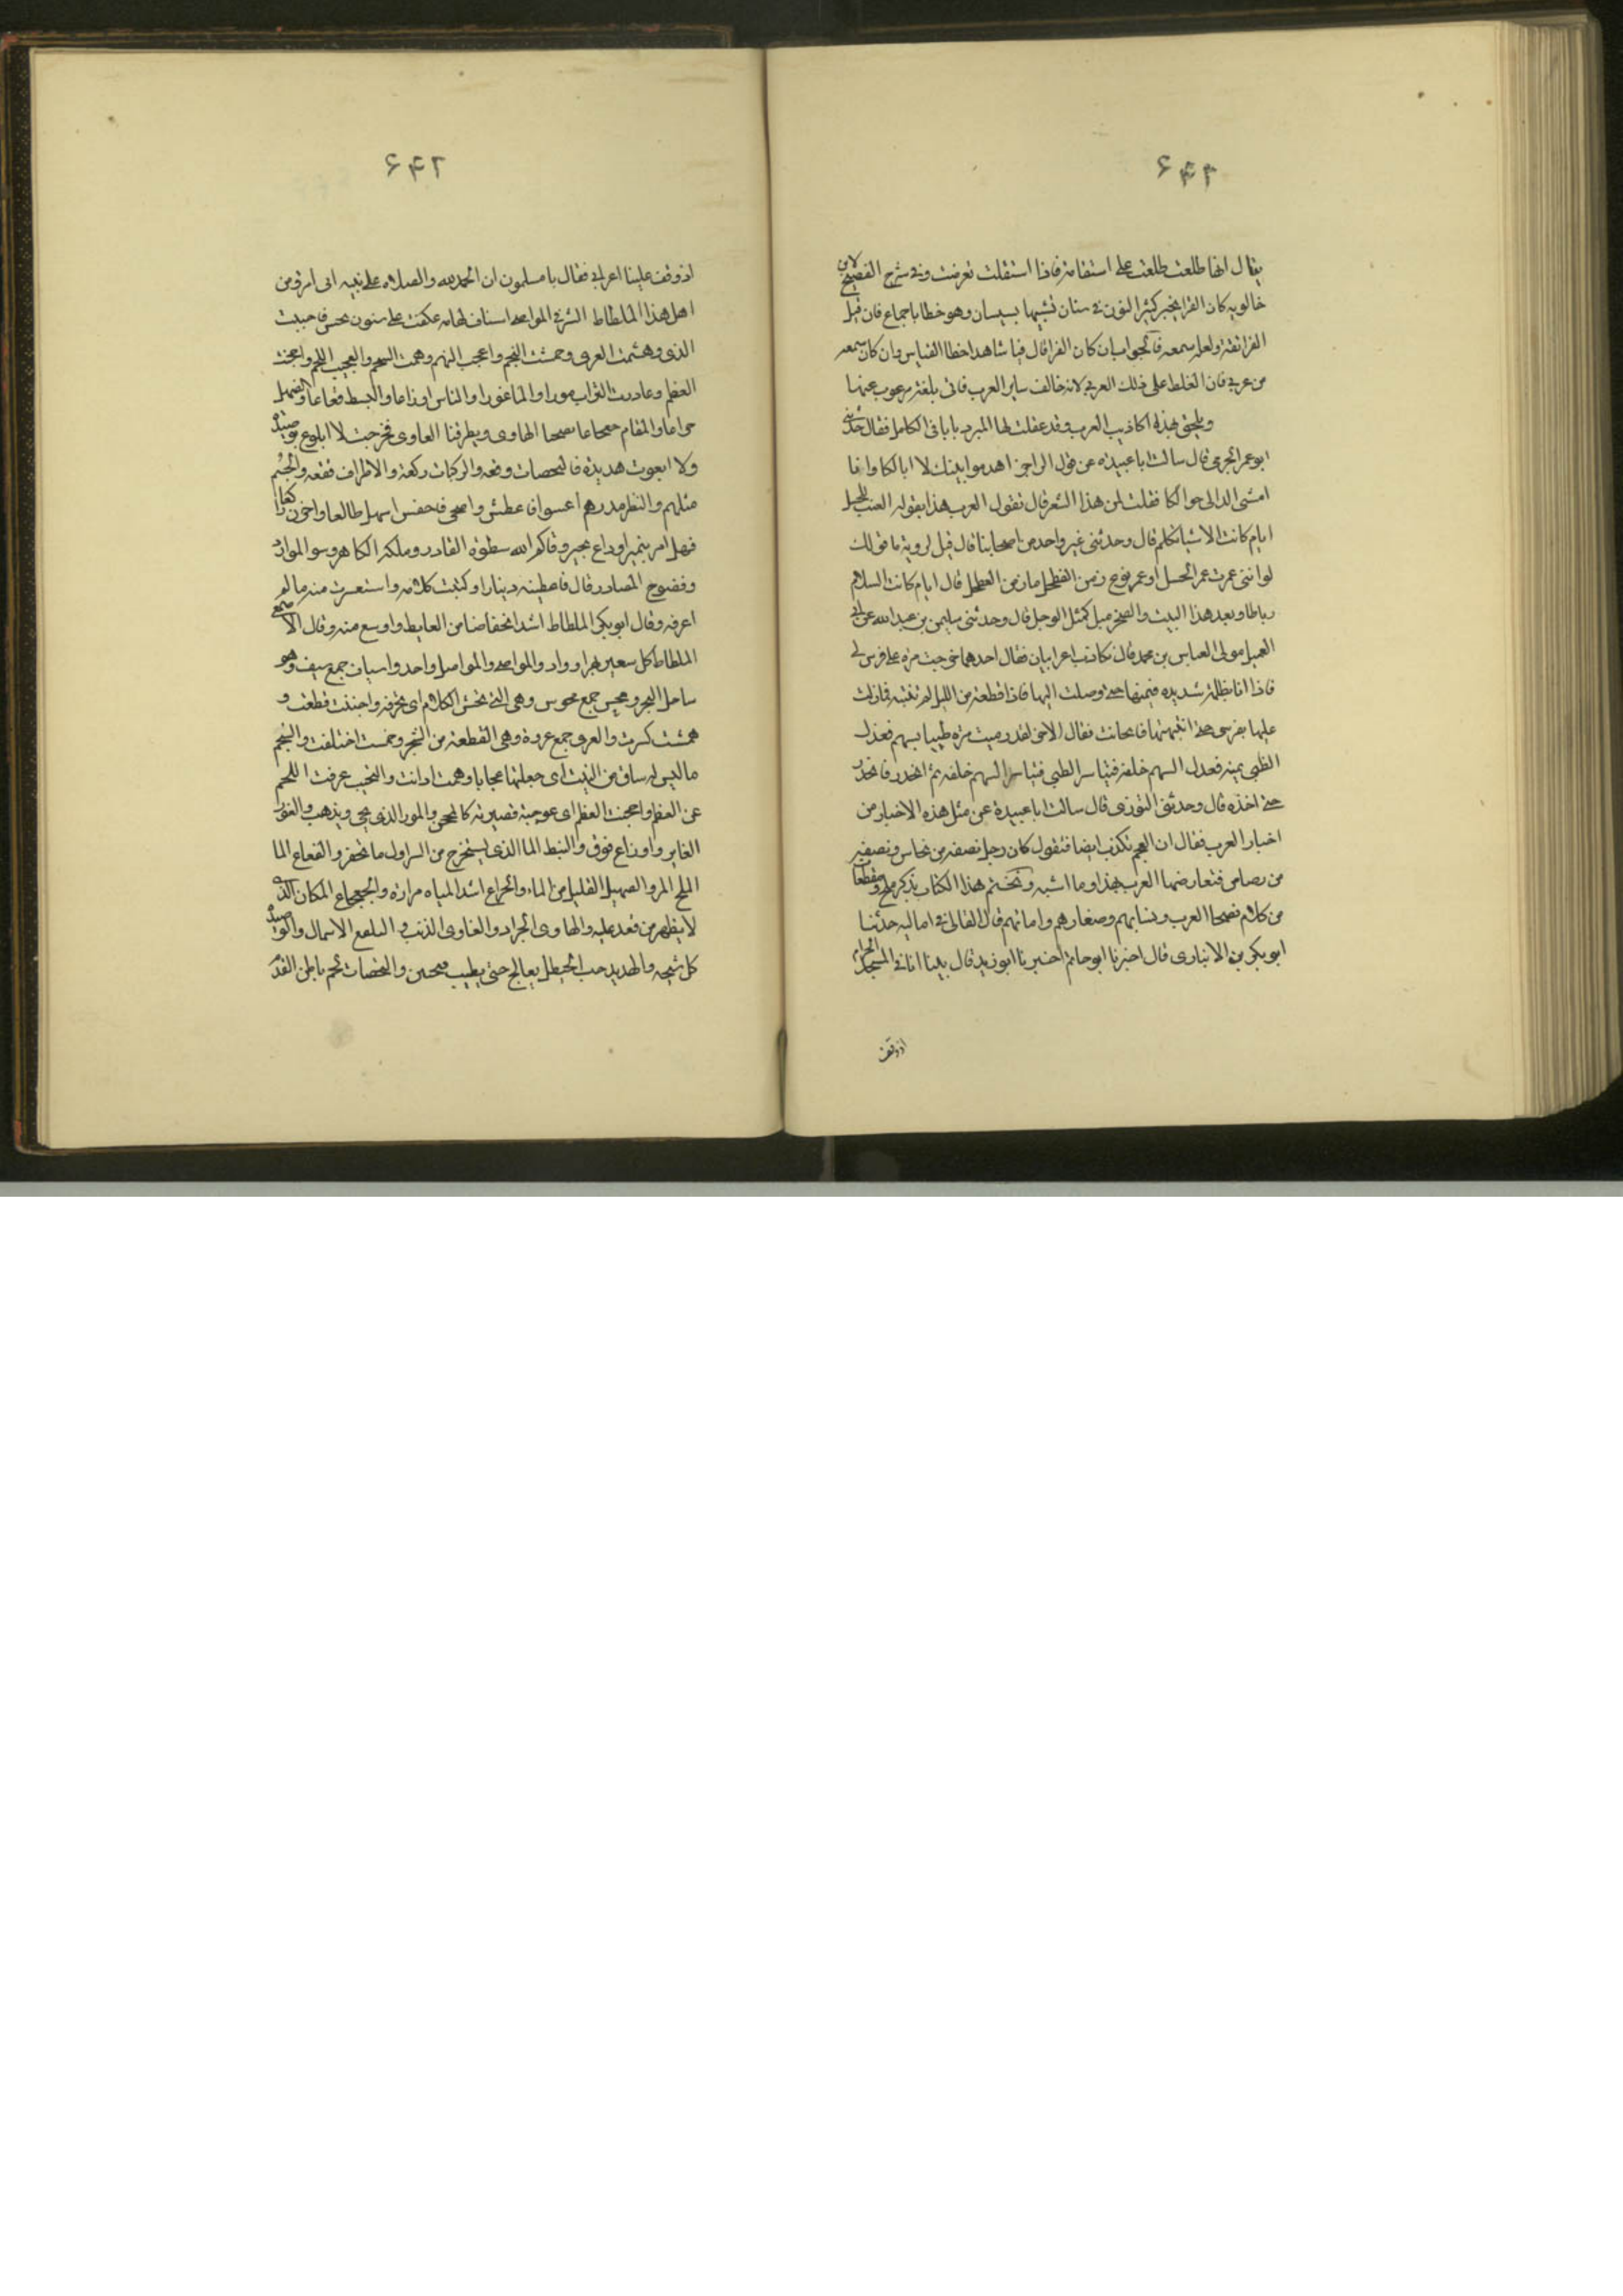 ۶۴۲
يقال انها طلعت طلعت على استقامة فاذا استقلت تعرضت وفى شرح الفصيح لابن
خالويه كان الفرا يجيز كسر النون فى شتان تشبيها بسيان وهو خطا باجماع فان قيل
الفرا ثقة ولعله سمعه فالجواب ان كان الفرا قال قياسا هذا خطا القياس وان كان سمعه
من عربى فان الغلط على ذلك العربى لانه خالف ساير العرب فاتى بلغة مرغوب عنها
ويلحق بهذا اكاذيب العرب وقد عقلت لها المبرد بابا فى الكامل فقال حدثنى
ابو عمر الجرمى قال سالت ابا عبيدة عن قول الراجز اهدموا بيتك لا ابا لكا وانا
امشى الدالى حوالكا فقلت لمن هذا الشعر قال تقول العرب هذا يقوله الضب للحسل
ايام كانت الاشيا تكلم قال وحدثنى غير واحد من اصحابنا قال قيل لروبة ما قولك
لو اننى عمرت عمر الحسل او عمر نوح زمن الفطحل ما زمن الفطحل قال ايام كانت السلام
رطابا وبعد هذا البيت والصخر مبتل كمثل الوحل قال وحدثنى سليمن بن عبد الله عن ابى
العميثل مولى العباس بن محمد قال تكاذب اعرابيان فقال احدهما خرجت مرة على فرس لى
فاذا انا بظلمة شديدة فيممتها حتى وصلت اليها فاذا قطعة من الليل لم تنتبه فمازلت
عليها بفرسى حتى انبهتها فانجابت فقال الاخر لقد رميت مرة ظبيا بسهم فعدل
الظبى يمينه فعدل السهم خلفه فتياسر الظبى فتياسر السهم خلفه ثم انحدر فانحدر
حتى اخذه قال وحدثنى التوزى قال سالت ابا عبيدة عن مثل هذه الاخبار من
اخبار العرب فقال ان العجم تكذب ايضا فتقول كان رجل نصفه من نحاس ونصفه
من رصاص فتعارضها العرب بهذا وما اشبهه ونختم هذا الكتاب بذكر ملح ومقطعا
من كلام فصحا العرب ونسايهم وصغارهم وامائهم قال القالى فى اماليه حدثنا
ابو بكر بن الانبارى قال اخبرنا ابو حاتم اخبرنا ابو زيد قال بينا انا فى المسجد الحرام
اذ وقف
۶۴۲
اذ وقف علينا اعرابى فقال يا مسلمون ان الحمد لله والصلاه على نبيه انى امرؤ من
اهل هذا الملطاط الشرقى المواصى اسياف تهامه عكفت على سنون محش فاجتبت
الذرى وهشمت العرى وجمشت النجم واعجت البهم وهمت الشحم والتحبت اللحم واحجنت
العظم وغادرت التراب مورا والماء غورا والناس اوزاعا والنبط قعاعا والضهل
جراعا والمقام جعجاعا يصبحنا الهاوى ويطرقنا العاوى فخرجت لا اتلفع بوصيدة
ولا اتقوت هبيدة فالبخصات وقعة والركبات زلعة والاطراف فقعة والجسم
مسلهم والنظر مدرهم اعشو فاغطش واضحى فاخفش اسهل ظالعا واحزن راكعا
فهل امر بمير او داع بخير وقاكم الله سطوة القادر وملكة الكاهر وسو الموارد
وفضوح المصادر قال فاعطيته دينارا وكتبت كلامه واستفسرت منه ما لم
اعرفه وقال ابو بكر الملطاط اشد انخفاضا من الغايط واوسع منه وقال الاصمعى
الملطاط كل شفير نهر او واد والمواصى والمواصل واحد واسياف جمع سيف وهو
ساحل البحر ومحش جمع محوش وهى التى تحش الكلام اى تحرقه واجتبت قطعت و
همشت كسرت والعرى جمع عروة وهى القطعة من الشجر وجمشت احتلقت والنجم
ما ليس له ساق من النبت اى جعلتها عجايا وهمت اذابت والتحبت عرقت اللحم
عن العظم واحجنت العظم اى عوجته فصيرته كالمحجن والمور الذى يجى ويذهب والغور
الغاير واوزاع فرق والنبط الما الذى يستخرج من البير اول ما تحفر والقعاع الما
الملح المر والضهيل القليل من الماء والجراع اشد المياه مرارة والجعجاع المكان الذى
لا يطمئن من قعد عليه والهاوى الجراد والعاوى الذئب والتلفع الاشتمال والوصيدة
كل نسيجه والهبيد حب الحنظل يعالج حتى يطيب فيختبز والبخصات لحم باطن القدم